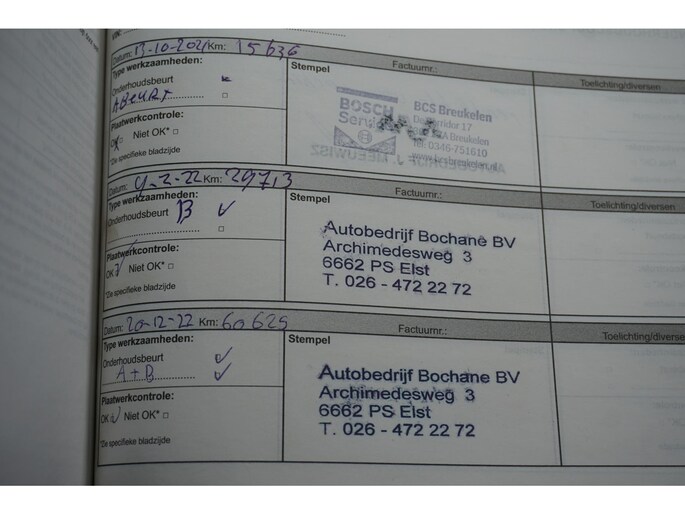 Datum: 13-10-2021 Km: 15636
Type werkzaamheden:
Onderhoudsbeurt
A BEURT
Plaatwerkcontrole:
OK Niet OK*
*De specifieke bladzijde
Stempel
Factuurnr.:
Toelichting/diversen
BOSCH
Service
BCS Breukelen
Breukelen
Tel: 0346-751610
J. MEEUWISZ
Datum: 9-2-22 Km: 29713
Type werkzaamheden:
Onderhoudsbeurt B
Plaatwerkcontrole:
OK Niet OK*
*De specifieke bladzijde
Stempel
Factuurnr.:
Toelichting/diversen
Autobedrijf Bochane BV
Archimedesweg 3
6662 PS Elst
T. 026 - 472 22 72
Datum: 20-12-22 Km: 60625
Type werkzaamheden:
Onderhoudsbeurt
A + B
Plaatwerkcontrole:
OK Niet OK*
*De specifieke bladzijde
Stempel
Factuurnr.:
Toelichting/diversen
Autobedrijf Bochane BV
Archimedesweg 3
6662 PS Elst
T. 026 - 472 22 72